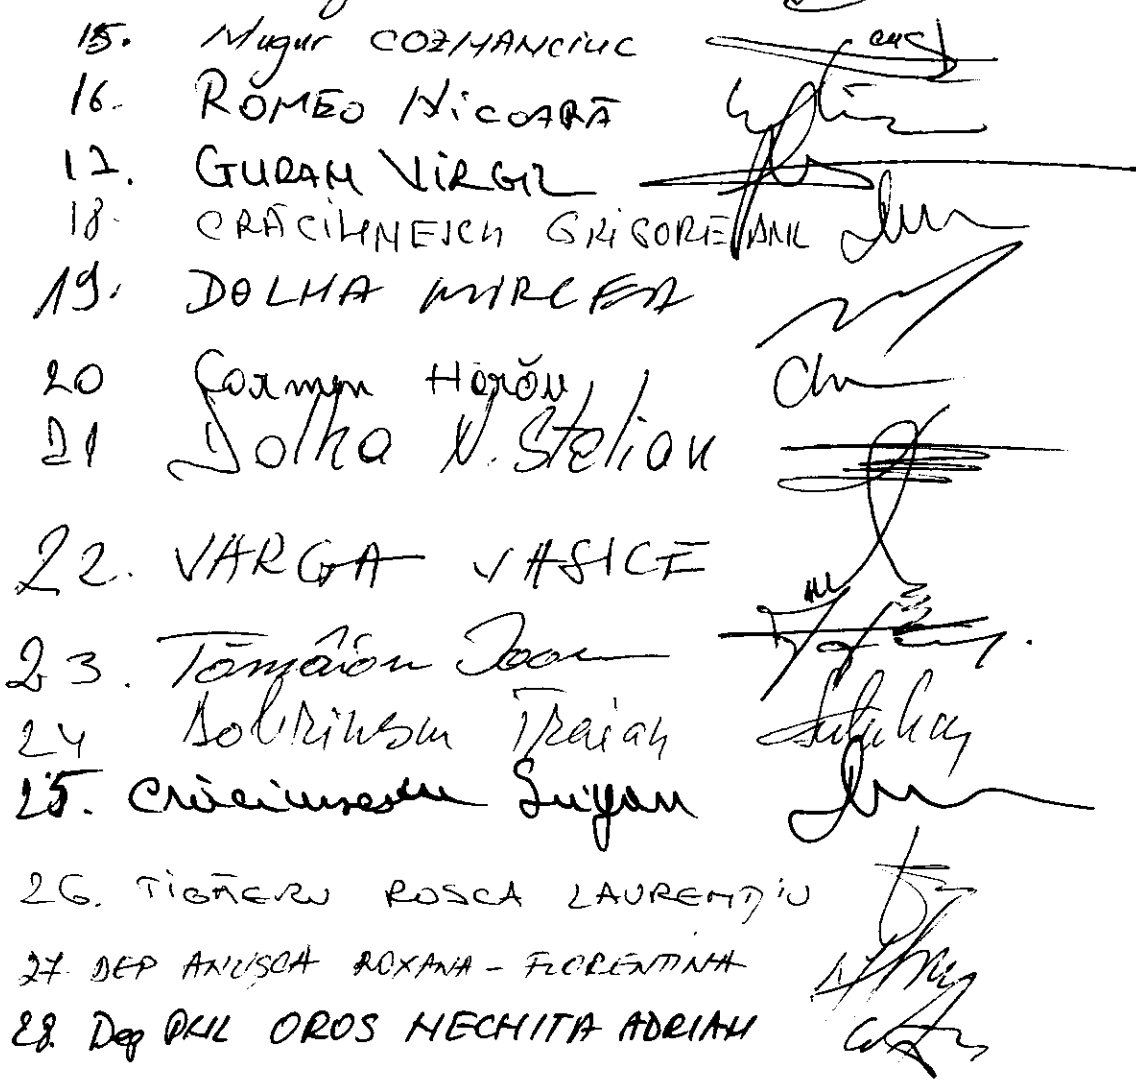 15. Mugur COZMANCIUC
16. ROMEO NICOARĂ
17. GURAN VIRGIL
18. CRĂCIUNESCU GRIGORE PNL
19. DOLHA MIRCEA
20 Carmen Hărău
21 Dolha N. Stelian
22. VARGA VASILE
23. Tămâian Ioan
24 Dobrinescu Traian
25. Crăciunescu
26. TIGĂERU ROSCA LAURENȚIU
27 DEP ANUSCA ROXANA - FLORENTINA
28. Dep PNL OROS NECHITA ADRIAN